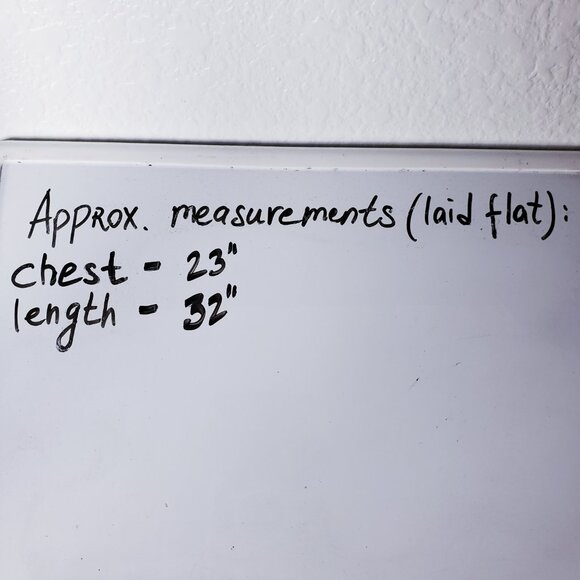 Approx. measurements (laid flat):
chest - 23"
length - 32"